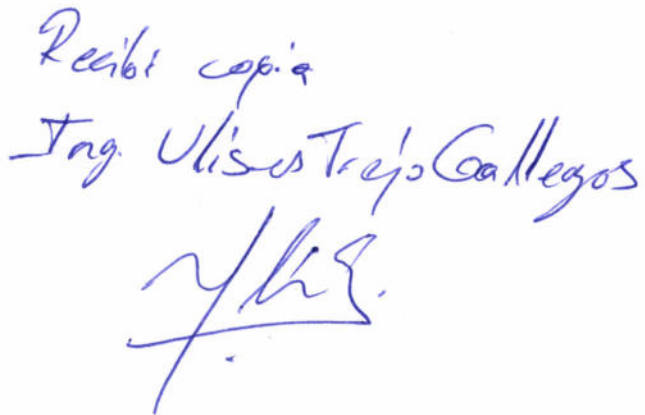 Recibi copia
Ing. Ulises Trejo Gallegos